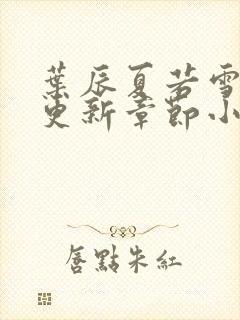 葉辰夏若雪
更新章節小
唇點朱紅